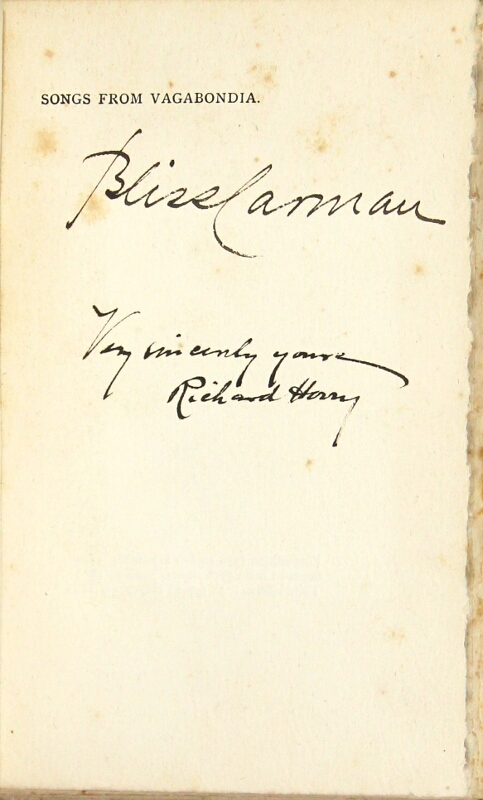 SONGS FROM VAGABONDIA.
Bliss Carman
Very sincerely yours
Richard Hovey